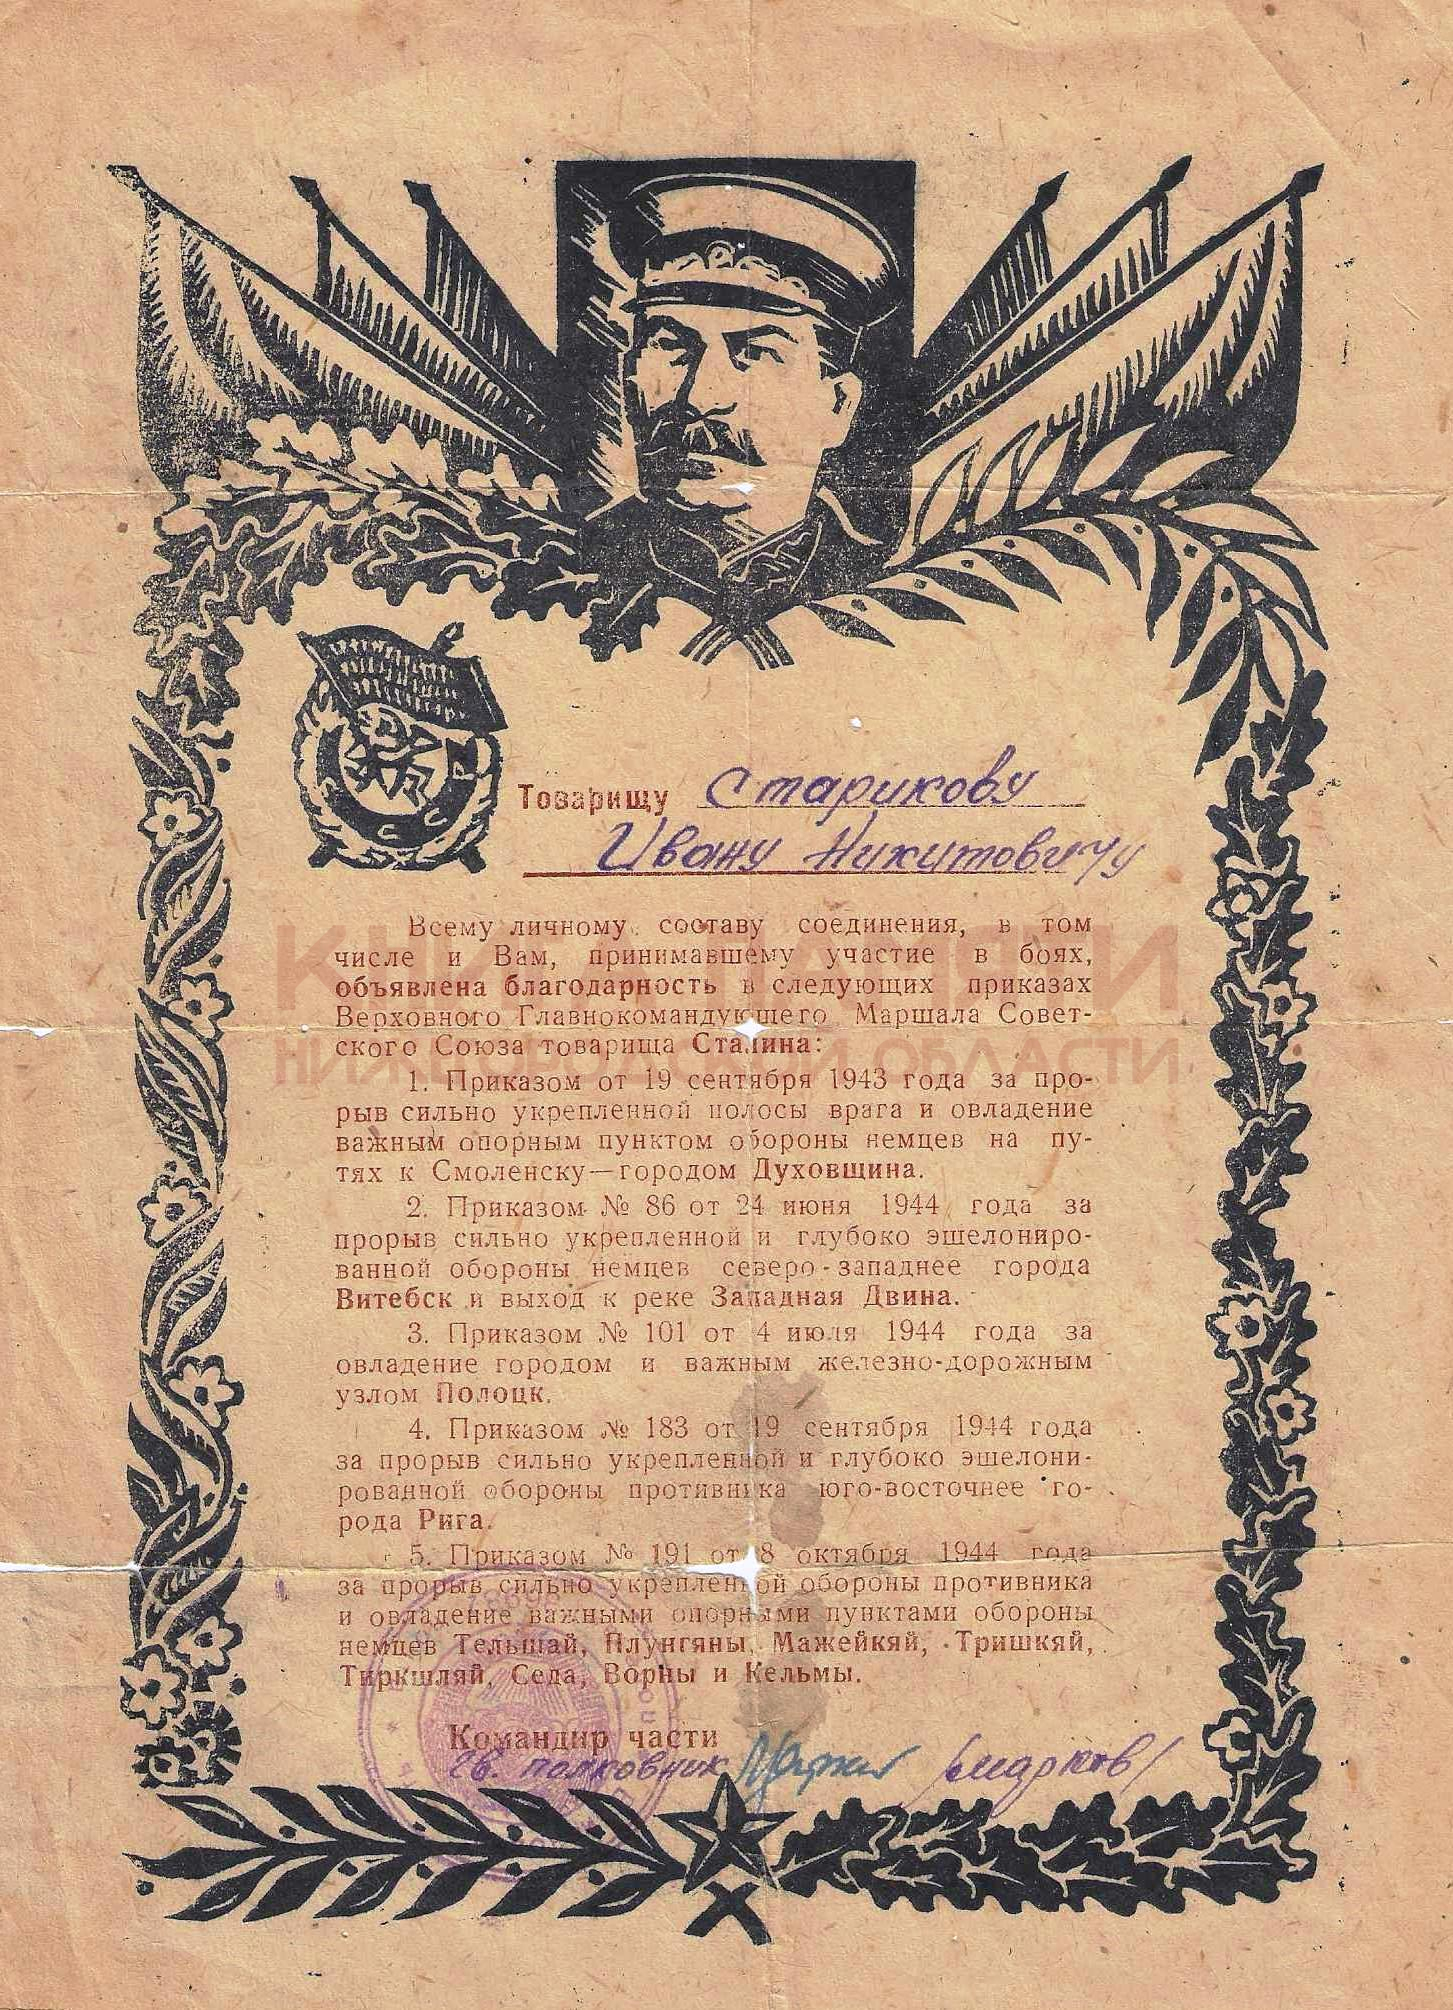 Товарищу Старикову
Ивану Никитовичу
Всему личному составу соединения, в том
числе и Вам, принимавшему участие в боях,
объявлена благодарность в следующих приказах
Верховного Главнокомандующего Маршала Совет-
ского Союза товарища Сталина:
1. Приказом от 19 сентября 1943 года за про-
рыв сильно укрепленной полосы врага и овладение
важным опорным пунктом обороны немцев на пу-
тях к Смоленску—городом Духовщина.
2. Приказом № 86 от 24 июня 1944 года за
прорыв сильно укрепленной и глубоко эшелониро-
ванной обороны немцев северо-западнее города
Витебск и выход к реке Западная Двина.
3. Приказом № 101 от 4 июля 1944 года за
овладение городом и важным железно-дорожным
узлом Полоцк.
4. Приказом № 183 от 19 сентября 1944 года
за прорыв сильно укрепленной и глубоко эшелони-
рованной обороны противника юго-восточнее го-
рода Рига.
5. Приказом № 191 от 8 октября 1944 года
за прорыв сильно укрепленной обороны противника
и овладение важными опорными пунктами обороны
немцев Тельшай, Плунгяны, Мажейкяй, Тришкяй,
Тиркшляй, Седа, Ворны и Кельмы.
Командир части
гв. полковник /Марков/
КНИГА ПАМЯТИ
НИЖЕГОРОДСКОЙ ОБЛАСТИ